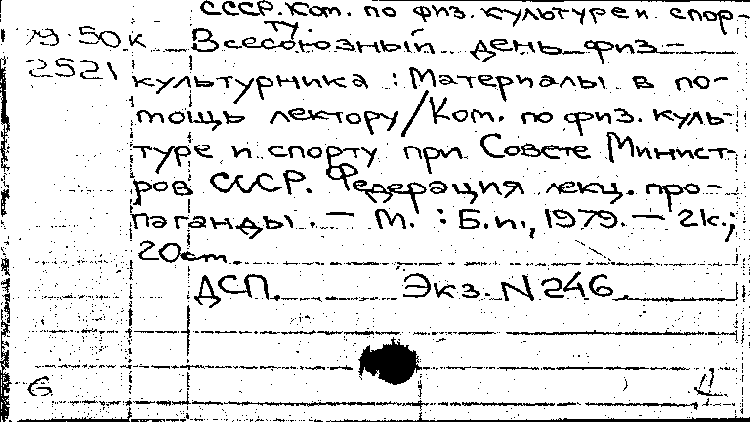 СССР. Ком. по физ. культуре и спор-
ту.
79-50к Всесоюзный день физ-
2521 культурника : Материалы в по-
мощь лектору/Ком. по физ. куль-
туре и спорту при Совете Минист-
ров СССР. Федерация лекц. про-
паганды. — М. : Б.и., 1979. — 21с.;
20см.
ДСП. Экз. N 246.
6